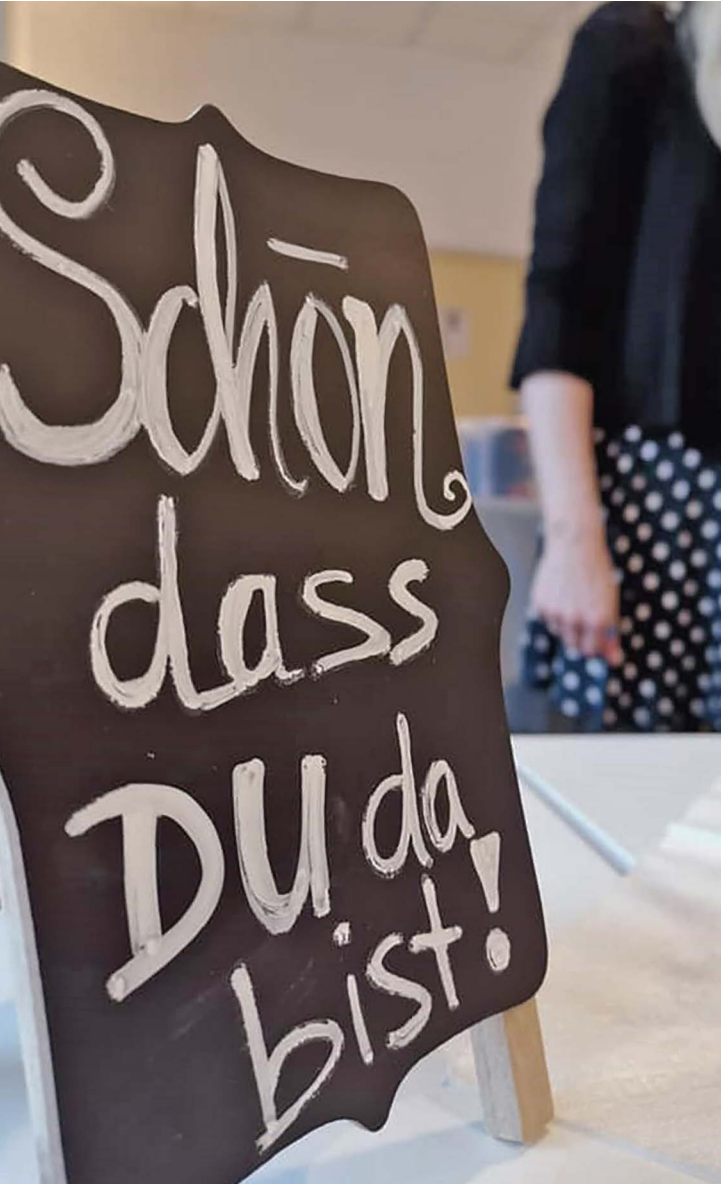 Schön
dass
DU da
bist!